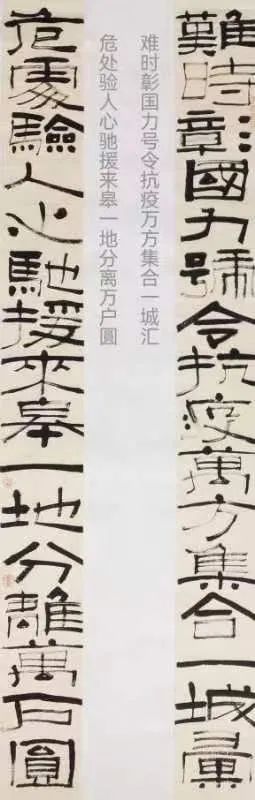 難時彰國力號令抗疫萬方集合一城彙
难时彰国力号令抗疫万方集合一城汇
危处验人心驰援来皋一地分离万户圆
危處驗人心馳援來皋一地分離萬戶圓